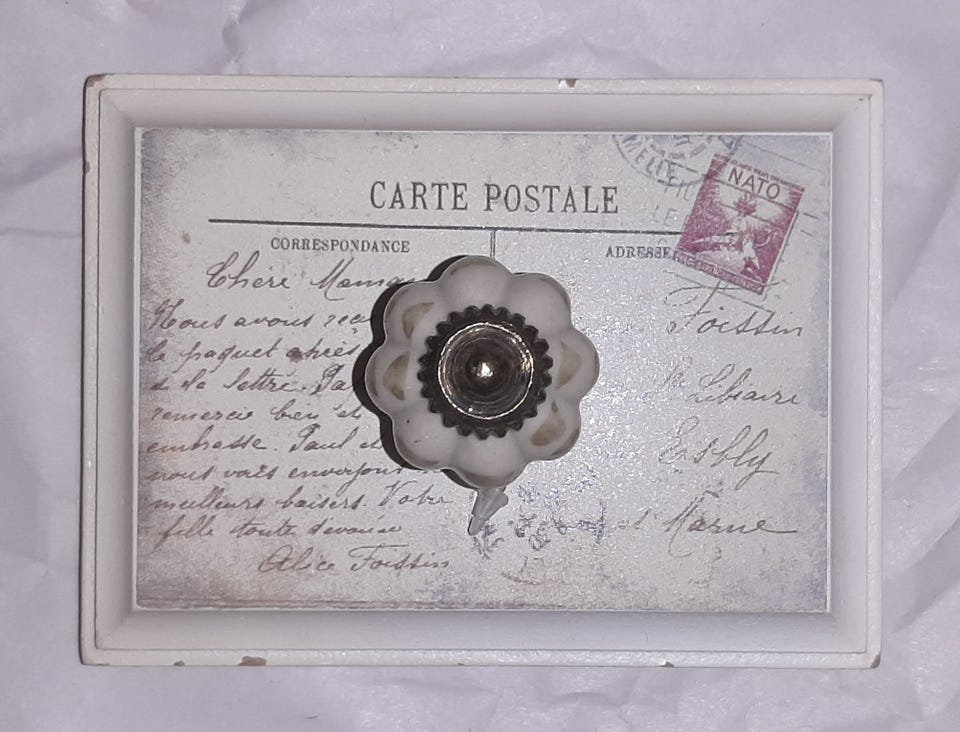 CARTE POSTALE
CORRESPONDANCE
ADRESSE
NATO
Chère Mama
Nous avons reç
le paquet après
d la lettre.
remercie bien et
embrasse. Paul et
nous vois envoyons
meilleurs baisers. Votre
fille toute devouée
Alice Foissin
Foissin
Libraire
Esbly
et Marne